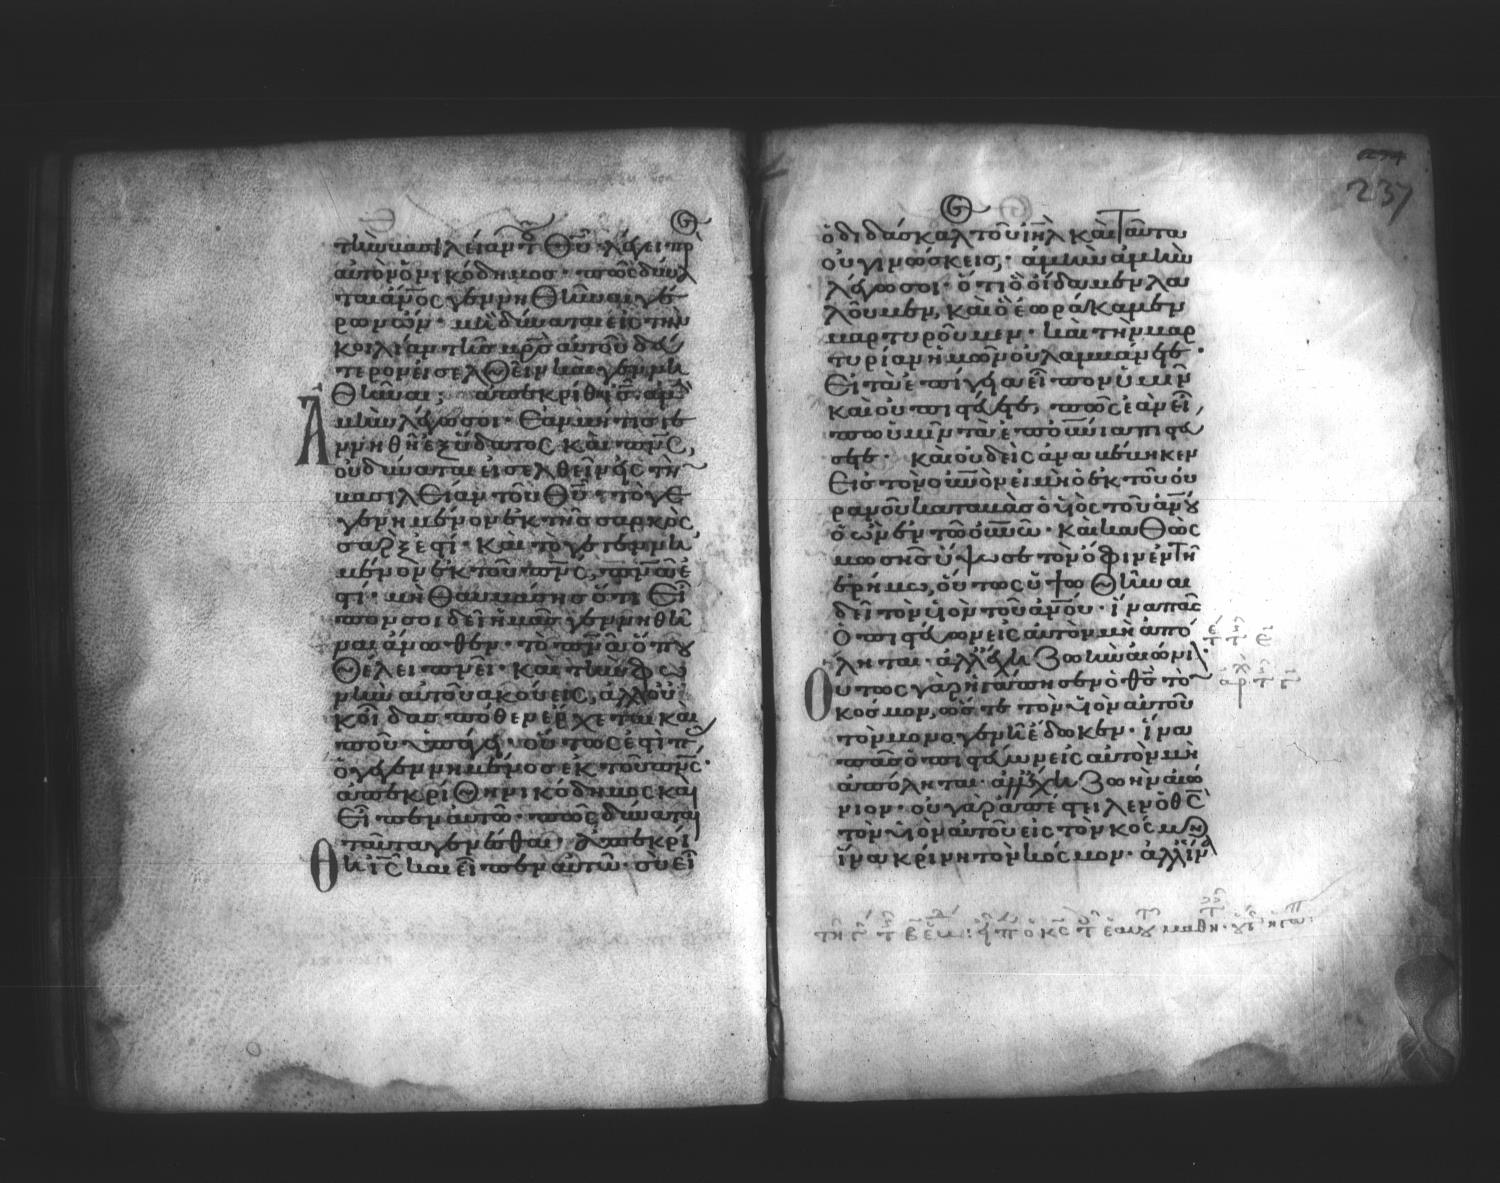 τὴν βασιλείαν τ Θῦ· λέγει πρ
αὐτὸν ὁ νικόδημος· πῶς δύνα
ται ἄν̅ος γεννηθῆναι γέ
ρων ὤν· μὴ δύναται εἰς τὴν
κοιλίαν τῆς μρ̅ς αὐτοῦ δεύ
τερον εἰσελθεῖν καὶ γεννη
θῆναι; ἀπεκρίθη ις̅· ἀμὴν
ἀμὴν λέγω σοι· ἐὰν μή τις γε
ννηθῆ ἐξ ὕδατος καὶ πν̅ς,
οὐ δύναται εἰσελθεῖν εἰς τὴν
βασιλείαν τοῦ Θῦ· τὸ γε
γεννημένον ἐκ τῆς σαρκὸς,
σάρξ ἐστι· καὶ τὸ γεγεννη
μένον ἐκ τοῦ πν̅ς, πν̅α ἐ
στι· μὴ θαυμάσης ὅτι εἶ
πόν σοι δεῖ ἡμᾶς γεννηθῆ
ναι ἄνωθεν· τὸ πν̅α ὅπου
θέλει πνεῖ· καὶ τὴν φω
νὴν αὐτοῦ ἀκούεις, ἀλλ οὐ
κ οἶδας πόθεν ἔρχεται καὶ
ποῦ ὑπάγει· οὕτως ἐστὶ π
ὁ γεγεννημένος ἐκ τοῦ πν̅ς·
ἀπεκρίθη νικόδημος καὶ
εἶπεν αὐτῶ· πῶς δύναται
ταῦτα γενέσθαι; ἀπεκρί
θη ις̅ καὶ εἶπεν αὐτῶ· σὺ εἶ
237
ὁ διδάσκαλ τοῦ ιη̅λ καὶ ταῦτα
οὐ γινώσκεις; ἀμὴν ἀμὴν
λέγω σοι· ὅτι ὃ οἴδαμεν λα
λοῦμεν, καὶ ὃ ἑωράκαμεν
μαρτυροῦμεν· καὶ τὴν μαρ
τυρίαν ἡμῶν οὐ λαμβάνετε·
Εἰ τὰ ἐπίγεια εἶπον ὑμῖν
καὶ οὐ πιστεύετε, πῶς ἐὰν εἴ
πω ὑμῖν τὰ ἐπουν̅ια πιστεύ
σετε· καὶ οὐδεὶς ἀναβέβηκεν
εἰς τὸν οὐν̅ον εἰ μὴ ὁ ἐκ τοῦ οὐ
ρανοῦ καταβὰς ὁ υἱὸς τοῦ ἀν̅ου
ὁ ὢν ἐν τῶ οὐν̅ῶ· καὶ καθὼς
μωσῆς ὕψωσε τὸν ὄφιν ἐν τῆ
ἐρήμω, οὕτως ὑψωθῆναι
δεῖ τὸν υἱὸν τοῦ ἀν̅ου· ἵνα πᾶς
ὁ πιστεύων εἰς αὐτὸν μὴ ἀπό
ληται· ἀλλ ἔχη ζωὴν αἰώνι
οὕτως γὰρ ἠγάπησεν ὁ θς̅ τὸν
κόσμον, ὥστε τὸν υἱὸν αὐτοῦ
τὸν μονογενῆ ἔδωκεν· ἵνα
πᾶς ὁ πιστεύων εἰς αὐτὸν μὴ
ἀπόληται· ἀλλ ἔχη ζωὴν αἰώ
νιον· οὐ γὰρ ἀπέστειλεν ὁ θς̅
τὸν υἱὸν αὐτοῦ εἰς τὸν κόσμον
ἵνα κρίνη τὸν κόσμον· ἀλλ ἵν